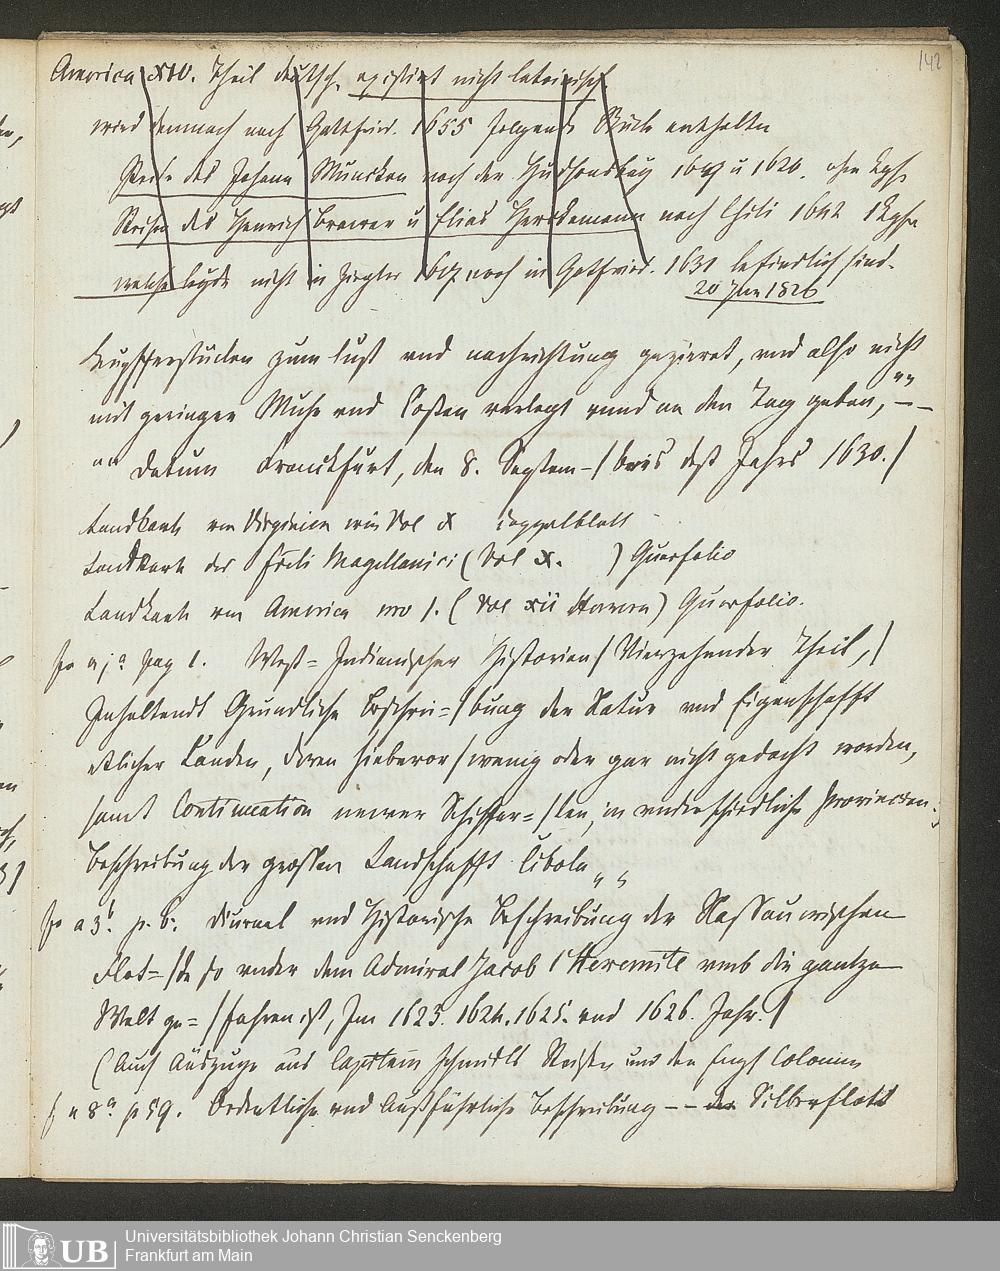 142
America XIV. Theil deutsch, existirt nicht lateinisch
wird demnach nach Gottfried. 1655 folgende Stücke enthalten
Reise des Johann Muncken nach der Hudsonsbay 1619 u 1620. ohne Kpfr
Reisen des Henrich Brawer u Elias Herckemann nach Chili 1642 1 Kpfr
welche beyde nicht in Ziegler 1617. noch in Gottfried. 1631 befindlich sind.
20 Jun 1826
Kupfferstucken zum lust vnd nachrichtung gezieret, vnd also nicht
mit geringer Muhe vnd Costen verlegt vnnd an den Tag geben, „„ – –
„„ Datum Franckfurt, den 8. Septem-/bris deß Jahrs 1630./
Landkarte von Virginien wie Vol X doppelblatt
Landkarte des Freti Magellanici (Vol X. ) Querfolio
Landkarte von America no 1. (Vol XII Herrera) Querfolio.
pag 1. West= Indianischer Historien/ Vierzehender Theil,/
Inhaltendt Grundliche Beschrei=/bung der Natur vnd Eigenschafft
etlicher Landen, deren hiebevor/ wenig oder gar nicht gedacht worden,
samt Continuation newer Schiffar=/ten, in vnderschiedliche Provincien:
Beschreibung der grossen Landschafft Cibola „ „
a 3b. p. 6. Diurnal vnd Historische Beschreibung der Nassawischen
Flot=/te so vnder dem Admiral Jacob l'Heremite vmb die gantze
Welt ge=/fahren ist, Im 1623. 1624. 1625. vnd 1626. Jahr./
(Auch Auszuge aus Capitein Schmidts Reisen und den Engl Colonien
a 8a p 59. Ordentliche vnd Außführliche Beschreibung – – der Silberflott
Universitätsbibliothek Johann Christian Senckenberg
UB Frankfurt am Main